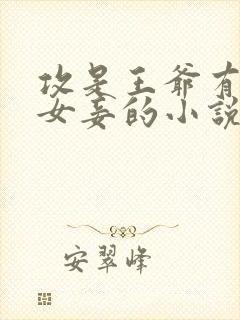 攻是王爷有
女妾的小說
安翠峰